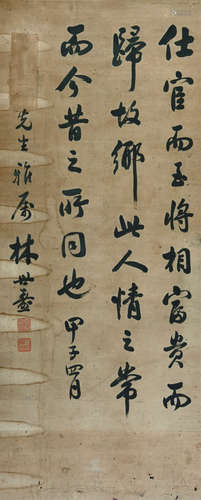 仕宦而至將相富貴而
歸故鄉此人情之常
而今昔之所同也甲子四月
先生雅屬林世燾